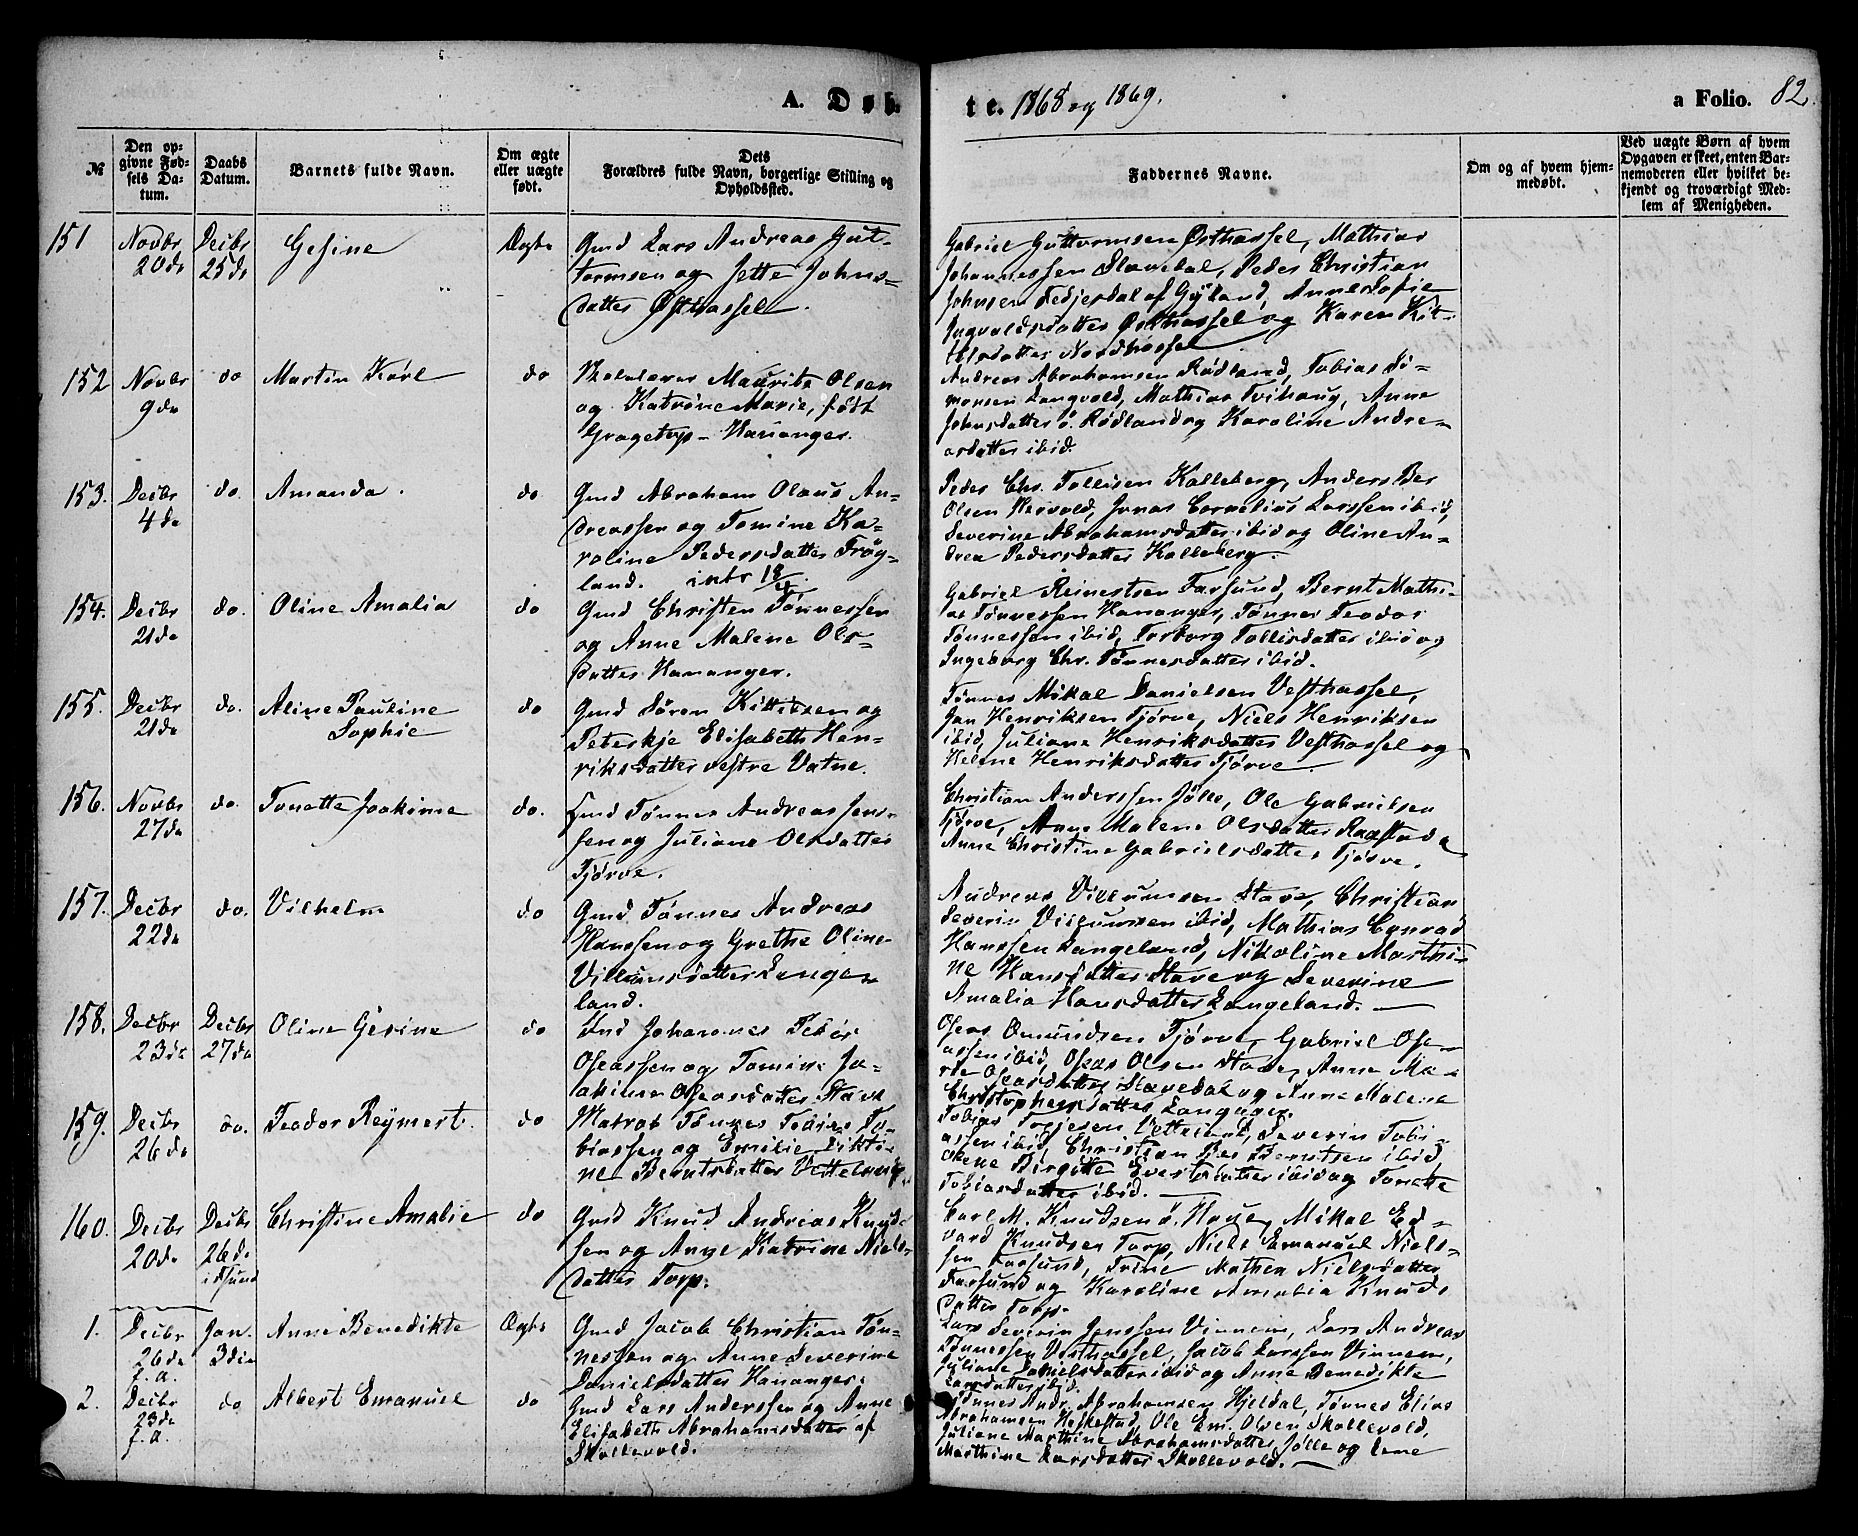 A. Døb-
te. 1868 og 1869.
a Folio. 82.
№
Den op-
givne Fød-
sels Da-
tum.
Daabs
Datum.
Barnets fulde Navn.
Om ægte
eller uægte
født.
Dets
Forældres fulde Navn, borgerlige Stilling og
Opholdssted.
Faddernes Navne.
Om og af hvem hjem-
medøbt.
Ved uægte Børn af hvem
Opgaven er skeet, enten Bar-
nemoderen eller hvilket be-
kjendt og troværdigt Med-
lem af Menigheden.
151 Novbr Decbr Gesine Ægte Gmd Lars Andreas Gut-
20de 25de tormsen og Jette Johns-
datter Østhassel.
Gabriel Guttormsen Østhassel, Mathias
Johannessen Slevedal, Peder Christian
Johnsen Fedjesdal af Gyland, Anne Sofie
Ingvaldsdatter Østhassel og Karen Kit-
tilsdatter Nordhassel
152 Novbr do Martin Karl do Skolelærer Mauritz Olsen
9de og Katrine Marie, født
Gragetop - Hananger.
Andreas Abrahamsen Rødland, Tobias Si-
monsen Langvold, Mathias Tvihaug, Anne
Johnsdatter ø. Rødland og Karoline Andre-
asdatter ibid.
153. Decbr do. Amanda. do Gmd Abraham Olaus An-
4de dreassen og Tomine Ka-
roline Pedersdatter Frøg-
land. intr 18/4.
Peder Chr. Tollisen Kalleberg, Anders Ber
Olsen, Jonas Cornelius Larssen ibid,
Severine Abrahamsdatter ibid og Oline An-
drea Pedersdatter Kalleberg.
154. Decbr do. Oline Amalia do Gmd Christen Tønnessen
21de og Anne Malene Ols-
datter Hananger.
Gabriel Reinertsen Farsund, Bernt Mathi-
as Tønnessen Hananger, Tønnes Teodor
Tønnessen ibid, Torborg Tollisdatter ibid og
Ingeborg Chr. Tønnesdatter ibid.
155. Decbr do. Aline Pauline do Gmd Søren Kittilsen og
21de Sophie Peterkje Elisabeth Hen-
riksdatter vestre Vatne.
Tønnes Mikal Danielsen Vesthassel,
Jan Henriksen Tjørve, Niels Henriksen
ibid, Juliane Henriksdatter Vesthassel og
Helene Henriksdatter Tjørve.
156. Novbr do. Tonette Joakime do. Gmd Tønnes Andreas Jens-
27de sen og Juliane Olsdatter
Tjørve.
Christian Anderssen Jølle, Ole Gabrielsen
Tjørve, Anne Malene Olsdatter Raastad
Anne Christine Gabrielsdatter Tjørve.
157. Decbr do. Vilhelm do Gmd Tønnes Andreas
22de Hanssen og Grethe Oline
Villumsdatter Lange-
land.
Andreas Villumsen Stave, Christian
Severin Villumsen ibid, Mathias Conrad
Hanssen Langeland, Nikoline Marthi-
ne Hansdatter Stave og Severine
Amalia Hansdatter Langeland.
158. Decbr Decbr Oline Gesine do Gmd Johannes Tobias
23de 27de Oseassen og Tomine Jo-
akime Oseasdatter Stave
Oseas Omundsen Tjørve, Gabriel Ose-
assen ibid, Oseas Olsen Stave, Anne Ma-
rie Oseasdatter Slevedal og Anne Malene
Christophersdatter Langager.
159. Decbr do. Teodor Reymert. do Matros Tønnes Tobias To-
26de biassen og Emilie
ne Berntsdatter Vetteland
Tobias Torjesen Vetteland, Severin Tobi-
assen ibid, Christian Ber Berntsen ibid
Birgitte Evertsdatter ibid og Tonette
Tobiasdatter ibid.
160. Decbr Decbr Christine Amalie do Gmd Knud Andreas Knud-
20de 26de sen og Anne Katrine Niels-
i Fsund datter Torp.
Carl M. Knudsen ø. Hauge, Mikal Ed-
vard Knudsen Torp, Niels Emanuel Niels-
sen Farsund, Trine Mathea Nielsdatter
Farsund og Karoline Amalia Knuds-
datter Torp.
1. Decbr Jan. Anne Benedikte Ægte Gmd Jacob Christian Tøn-
26de 3die nessen og Anne Severine
f. a. Danielsdatter Hananger.
Lars Severin Jenssen Vinnem, Lars Andreas
Tønnessen Vesthassel, Jacob Larssen Vinnem,
Juliane Danielsdatter ibid og Anne Benedikte
Larsdatter ibid.
2. Decbr do Albert Emanuel do Gmd Lars Anderssen og Anne
23de Elisabeth Abrahamsdatter af
f. a. Skollevold.
Tønnes Andr. Abrahamsen Hjeldal, Tønnes Elias
Abrahamsen Heskestad, Ole Em. Olsen Skollevold,
Juliane Marthine Abrahamsdatter Jølle og Lene
Marthine Larsdatter Skollevold.